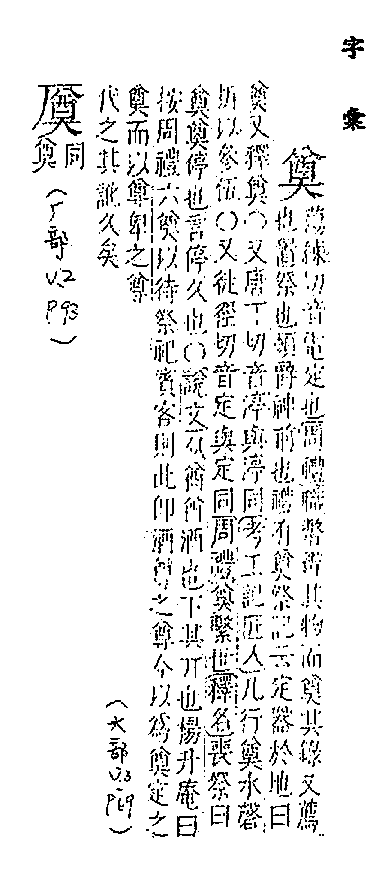 字彙
奠
蕩練切音電定也周禮職幣辨其物而奠其錄又薦
也置祭也頓爵神前也禮有奠祭記云定器於地曰
奠又釋奠〇又唐丁切音渟與渟同考工記匠人凡行奠水磬
折以參伍〇又徒徑切音定與定同周禮奠繫也釋名喪祭曰
奠奠停也言停久也〇說文从酋酋酒也下其丌也楊升庵曰
按周禮六奠以待祭祀賓客則此即酒尊之尊今以為奠定之
奠而以尊卑之尊
代之其訛久矣
(大部 V.3 P.69)
同奠
(厂部 V.2 P93)